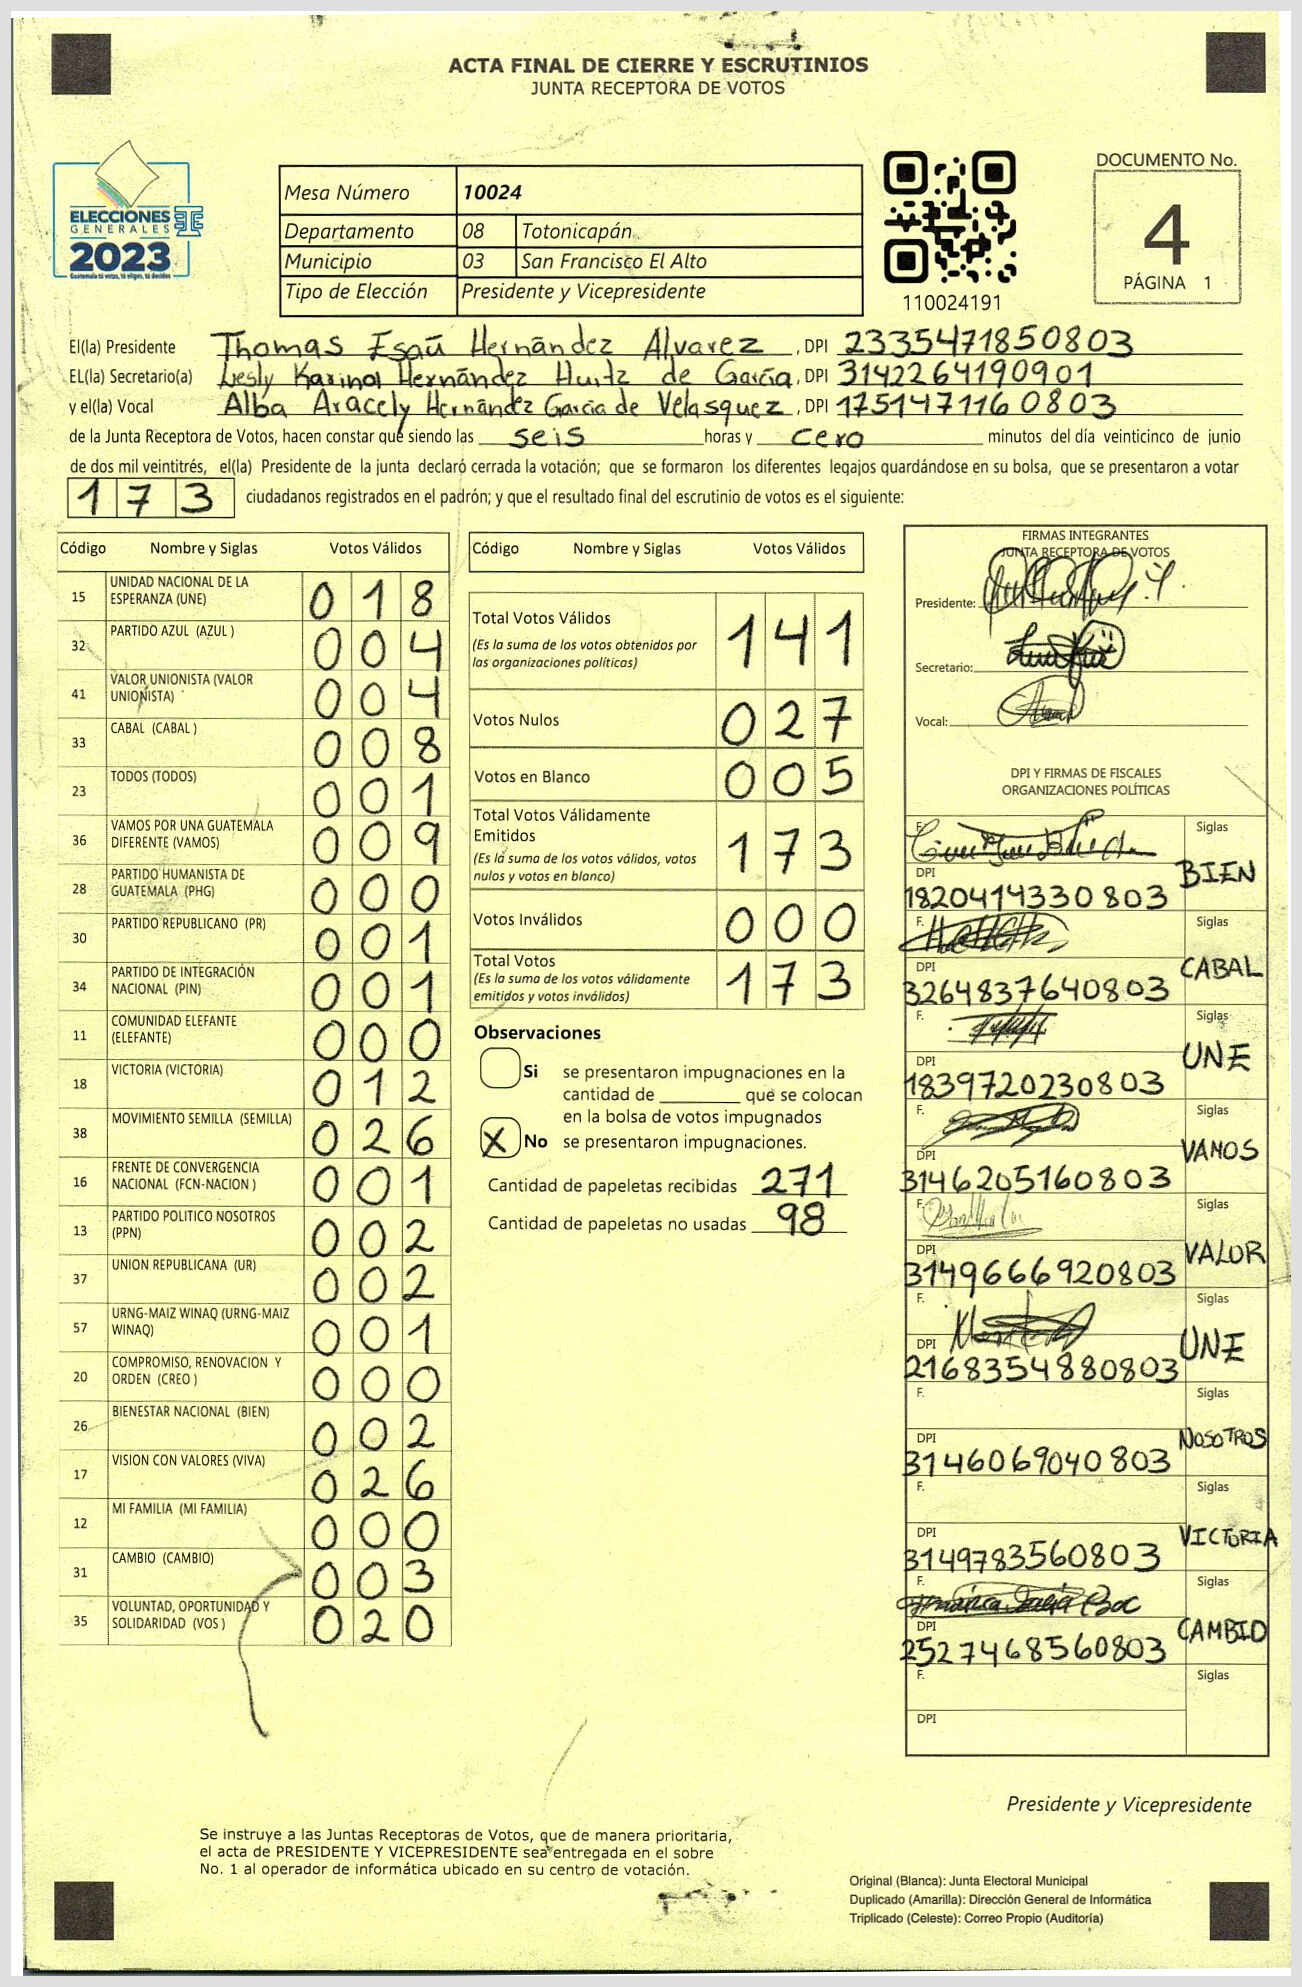 ACTA FINAL DE CIERRE Y ESCRUTINIOS
JUNTA RECEPTORA DE VOTOS
ELECCIONES
GENERALES
2023
Guatemala tú votas, tú eliges, tú decides
Mesa Número 10024
Departamento 08 Totonicapán
Municipio 03 San Francisco El Alto
Tipo de Elección Presidente y Vicepresidente
110024191
DOCUMENTO No.
4
PÁGINA 1
El(la) Presidente Thomas Esaú Hernández Alvarez, DPI 2335471850803
EL(la) Secretario(a) Lesly Karina Hernández Huitz de García, DPI 3142264190901
y el(la) Vocal Alba Aracely Hernández García de Velasquez, DPI 1751471160803
de la Junta Receptora de Votos, hacen constar que siendo las seis horas y cero minutos del día veinticinco de junio
de dos mil veintitrés, el(la) Presidente de la junta declaró cerrada la votación; que se formaron los diferentes legajos guardándose en su bolsa, que se presentaron a votar
173 ciudadanos registrados en el padrón; y que el resultado final del escrutinio de votos es el siguiente:
Código Nombre y Siglas Votos Válidos
15 UNIDAD NACIONAL DE LA ESPERANZA (UNE) 018
32 PARTIDO AZUL (AZUL ) 004
41 VALOR UNIONISTA (VALOR UNIONISTA) 004
33 CABAL (CABAL ) 008
23 TODOS (TODOS) 001
36 VAMOS POR UNA GUATEMALA DIFERENTE (VAMOS) 009
28 PARTIDO HUMANISTA DE GUATEMALA (PHG) 000
30 PARTIDO REPUBLICANO (PR) 001
34 PARTIDO DE INTEGRACIÓN NACIONAL (PIN) 001
11 COMUNIDAD ELEFANTE (ELEFANTE) 000
18 VICTORIA (VICTORIA) 012
38 MOVIMIENTO SEMILLA (SEMILLA) 026
16 FRENTE DE CONVERGENCIA NACIONAL (FCN-NACION ) 001
13 PARTIDO POLITICO NOSOTROS (PPN) 002
37 UNION REPUBLICANA (UR) 002
57 URNG-MAIZ WINAQ (URNG-MAIZ WINAQ) 001
20 COMPROMISO, RENOVACION Y ORDEN (CREO ) 000
26 BIENESTAR NACIONAL (BIEN) 002
17 VISION CON VALORES (VIVA) 026
12 MI FAMILIA (MI FAMILIA) 000
31 CAMBIO (CAMBIO) 003
35 VOLUNTAD, OPORTUNIDAD Y SOLIDARIDAD (VOS ) 020
Código Nombre y Siglas Votos Válidos
Total Votos Válidos 141
(Es la suma de los votos obtenidos por
las organizaciones políticas)
Votos Nulos 027
Votos en Blanco 005
Total Votos Válidamente
Emitidos 173
(Es la suma de los votos válidos, votos
nulos y votos en blanco)
Votos Inválidos 000
Total Votos 173
(Es la suma de los votos válidamente
emitidos y votos inválidos)
Observaciones
Si se presentaron impugnaciones en la
cantidad de ________ que se colocan
en la bolsa de votos impugnados
X No se presentaron impugnaciones.
Cantidad de papeletas recibidas 271
Cantidad de papeletas no usadas 98
FIRMAS INTEGRANTES
JUNTA RECEPTORA DE VOTOS
Presidente:
Secretario:
Vocal:
DPI Y FIRMAS DE FISCALES
ORGANIZACIONES POLÍTICAS
F. Siglas BIEN
DPI 1820414330803
F. Siglas CABAL
DPI 3264837640803
F. Siglas UNE
DPI 1839720230803
F. Siglas VAMOS
DPI 3146205160803
F. Siglas VALOR
DPI 3149666920803
F. Siglas UNE
DPI 2168354880803
F. Siglas NOSOTROS
DPI 3146069040803
F. Siglas VICTORIA
DPI 3149783560803
F. Siglas CAMBIO
DPI 2527468560803
F. Siglas
DPI
Presidente y Vicepresidente
Se instruye a las Juntas Receptoras de Votos, que de manera prioritaria,
el acta de PRESIDENTE Y VICEPRESIDENTE sea entregada en el sobre
No. 1 al operador de informática ubicado en su centro de votación.
Original (Blanca): Junta Electoral Municipal
Duplicado (Amarilla): Dirección General de Informática
Triplicado (Celeste): Correo Propio (Auditoría)